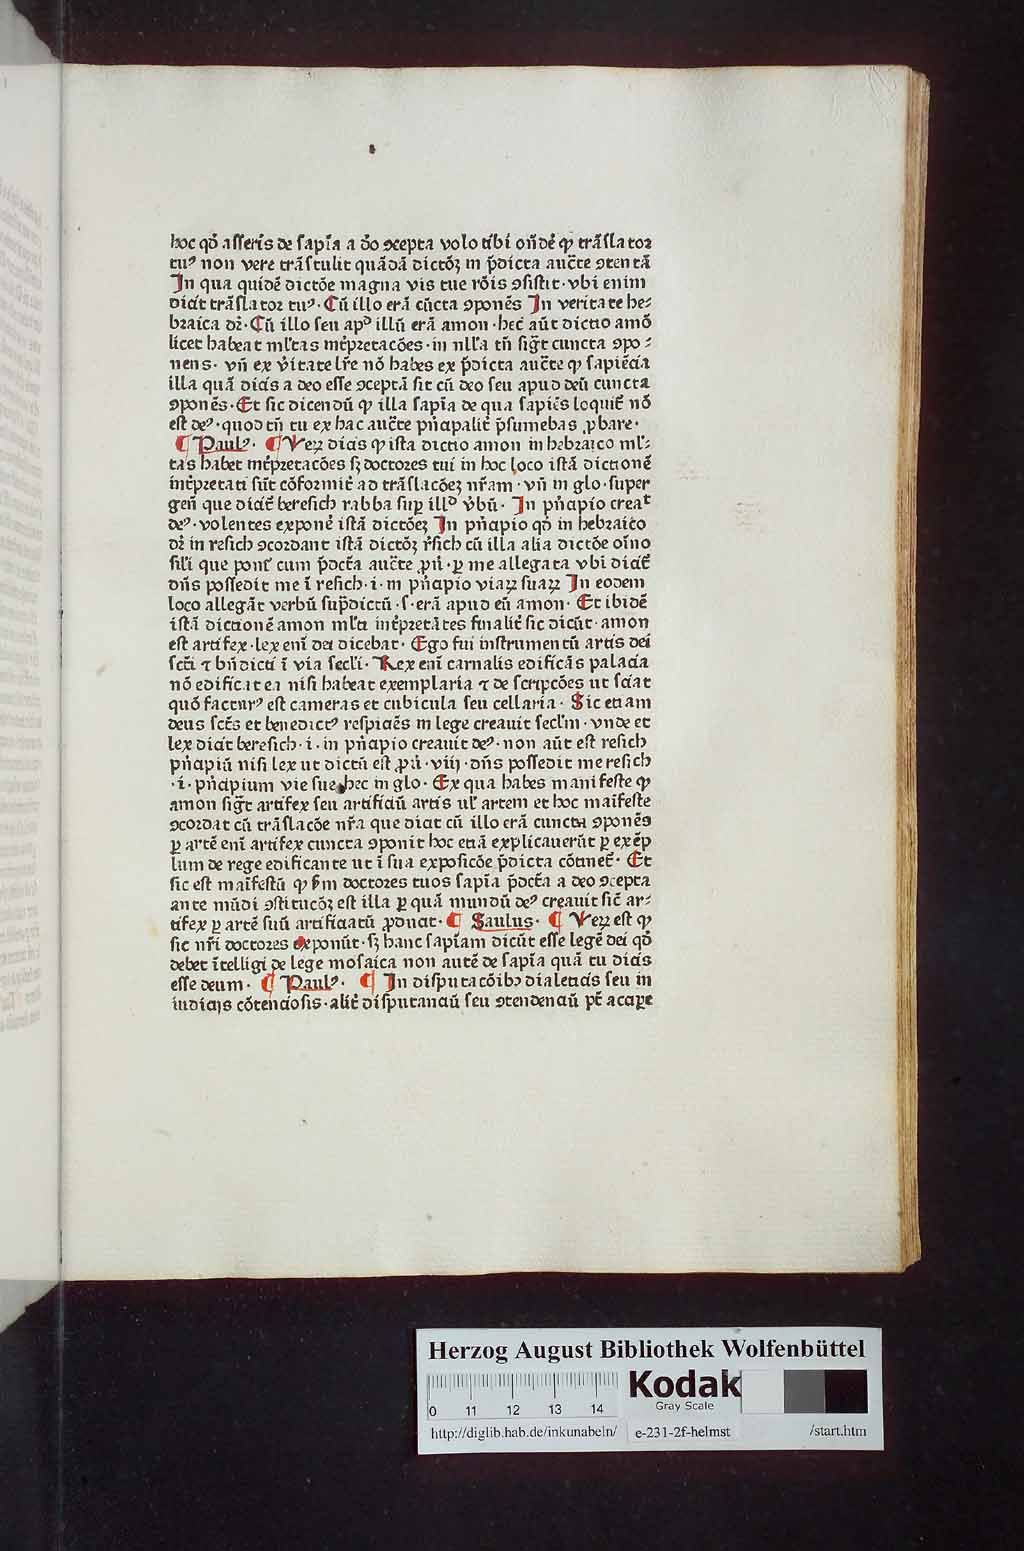 hoc qd̓ asseris de sapīa a dō ꝯcepta volo tibi on̄de᷑ ꝙ trāslator
tuꝰ non vere trāstulit quādā dictōꝫ in p̄dicta auc̄te ꝯtentā
In qua quidē dictōe magna vis tue rōis ꝯsistit · vbi enim
dicit trāslator tuꝰ · Cū illo erā cūcta ꝯponēs In veritate he⸗
braica dr̄ · Cū illo seu apᵈ illū erā amon · hec aūt dictio amō
licet habeat ml̓tas int̓pretacōes · in nll̓a tn̄ sigt̄ cuncta ꝯpo⸗
nens · vn̄ ex v̓itate lr̄e nō habes ex p̄dicta auc̄te ꝙ sapiēcia
illa quā dicis a deo esse ꝯceptā sit cū deo seu apud deū cuncta
ꝯponēs · Et sic dicendū ꝙ illa sapīa de qua sapiēs loquit᷑ nō
est deꝰ · quod tn̄ tu ex hac auc̄te pn̄cipalit̓ p̄sumebas ꝓbare ·
¶ Paulꝰ · ¶ Veꝝ dicis ꝙ ista dictio amon in hebraico ml̓⸗
tas habet int̓pretacōes sꝫ doctores tui in hoc loco istā dictionē
int̓pretati sūt cōformit̓ ad trāslacōeꝫ nr̄am · vn̄ in glo · super
gen̄ que dicit᷑ beresich rabba suꝑ illᵈ v̓bū · In pn̄cipio creaᵗ
deꝰ · volentes expone᷑ istā dictōeꝫ In pn̄cipio qd̓ in hebraico
dr̄ in resich ꝯcordant istā dictōꝫ r̓sich cū illa alia dictōe oīno
sil̓i que poni᷑ cum p̄dcta auc̄te ꝓū · ꝑ me allegata vbi dicit᷑
dn̄s possedit me ī resich · i · in pn̄cipio viaꝝ suaꝝ In eodem
loco allegāt verbū sup̄dictū · s · erā apud eū amon · Et ibidē
istā dictionē amon ml̓ti int̓pretātes finalit̓ sic dicūt · amon
est artifex · lex enī dei dicebat · Ego fui instrumentū artis dei
scti ⁊ bn̄dicti ī via secl̓i · Rex enī carnalis edificās palacia
nō edificat ea nisi habeat exemplaria ⁊ de scripcōes ut sciat
quō facturꝰ est cameras et cubicula seu cellaria · Sic etiam
deus sctēs et benedictꝰ respiciēs in lege creauit secl̓m · vnde et
lex dicit beresich · i · in pn̄cipio creauit deꝰ · non aūt est resich
pn̄cipiū nisi lex ut dictū est ꝓū · viij · dn̄s possedit me resich
· i · pn̄cipium vie sue hec in glo · Ex qua habes manifeste ꝙ
amon sigt̄ artifex seu artificiū artis ul̓ artem et hoc maīfeste
ꝯcordat cū trāslacōe nr̄a que dicit cū illo erā cuncta ꝯponēs
ꝑ artē enī artifex cuncta ꝯponit hoc etiā explicauerūt ꝑ exēp
lum de rege edificante ut ī sua exposicōe p̄dicta cōtinet᷑ · Et
sic est maīfestū ꝙ sm̄ doctores tuos sapīa p̄dcta a deo ꝯcepta
ante mūdi ꝯstitucōꝫ est illa ꝑ quā mundū deꝰ creauit sic̄ ar⸗
tifex ꝑ artē suū artificiatū ꝓducit · ¶ Saulus · ¶ Veꝝ est ꝙ
sic nr̄i doctores exponūt · sꝫ hanc sapīam dicūt esse legē dei qd̓
debet ītelligi de lege mosaica non autē de sapīa quā tu dicis
esse deum · ¶ Paulꝰ · ¶ In disputacōibꝫ dialeticis seu in
iudicijs cōtenciosis · alit̓ disputanciū seu ꝯtendenciū pt̄ acciꝑe
Herzog August Bibliothek Wolfenbüttel
0 11 12 13 14
Kodak
Gray Scale
http://diglib.hab.de/inkunabeln/ e-231-2f-helmst /start.htm